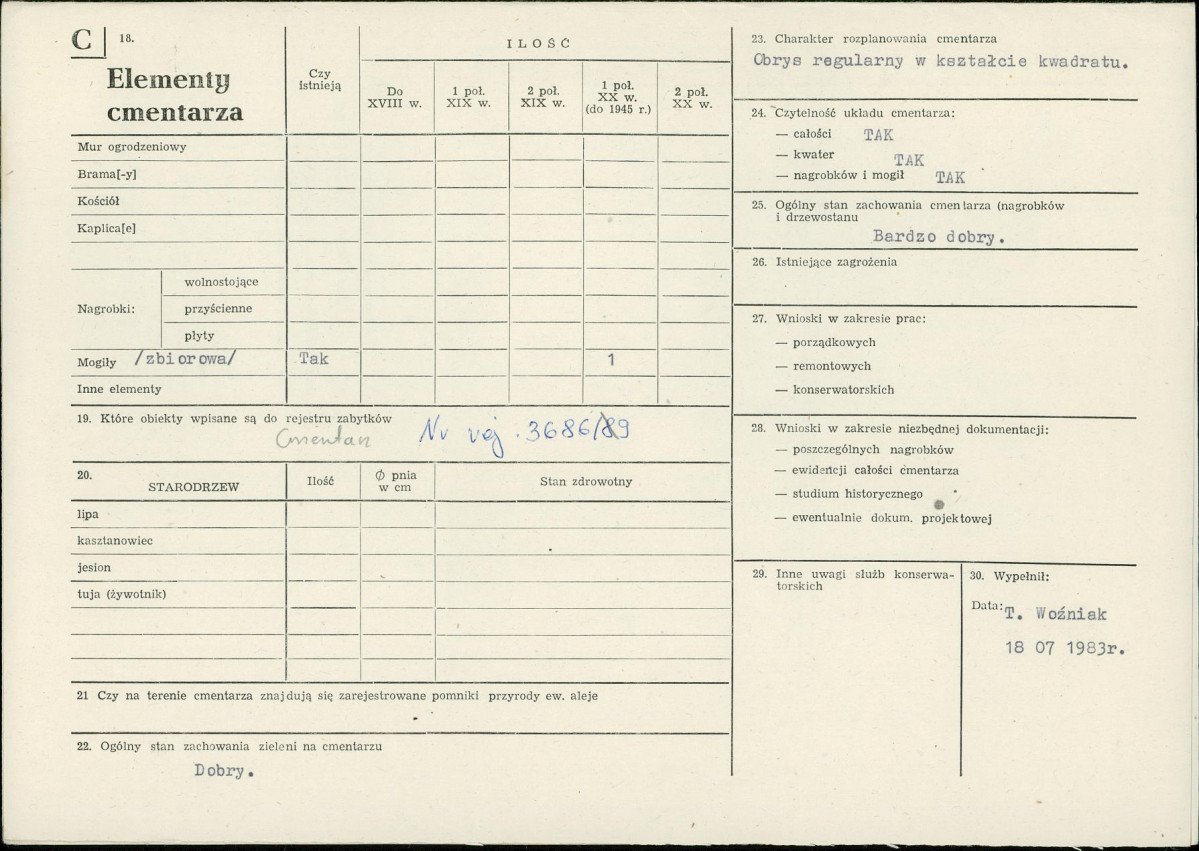 C 18.
Elementy
cmentarza
Czy
istnieją
ILOŚĆ
Do
XVIII w.
1 poł.
XIX w.
2 poł.
XIX w.
1 poł.
XX w.
(do 1945 r.)
2 poł.
XX w.
Mur ogrodzeniowy
Brama[-y]
Kościół
Kaplica[e]
Nagrobki:
wolnostojące
przyścienne
płyty
Mogiły /zbiorowa/ Tak 1
Inne elementy
19. Które obiekty wpisane są do rejestru zabytków
Cmentarz Nr rej. 3686/89
20.
STARODRZEW
Ilość
Ø pnia
w cm
Stan zdrowotny
lipa
kasztanowiec
jesion
tuja (żywotnik)
21 Czy na terenie cmentarza znajdują się zarejestrowane pomniki przyrody ew. aleje
22. Ogólny stan zachowania zieleni na cmentarzu
Dobry.
23. Charakter rozplanowania cmentarza
Obrys regularny w kształcie kwadratu.
24. Czytelność układu cmentarza:
— całości TAK
— kwater TAK
— nagrobków i mogił TAK
25. Ogólny stan zachowania cmentarza (nagrobków
i drzewostanu
Bardzo dobry.
26. Istniejące zagrożenia
27. Wnioski w zakresie prac:
— porządkowych
— remontowych
— konserwatorskich
28. Wnioski w zakresie niezbędnej dokumentacji:
— poszczególnych nagrobków
— ewidencji całości cmentarza
— studium historycznego
— ewentualnie dokum. projektowej
29. Inne uwagi służb konserwa-
torskich
30. Wypełnił:
Data: T. Woźniak
18 07 1983r.